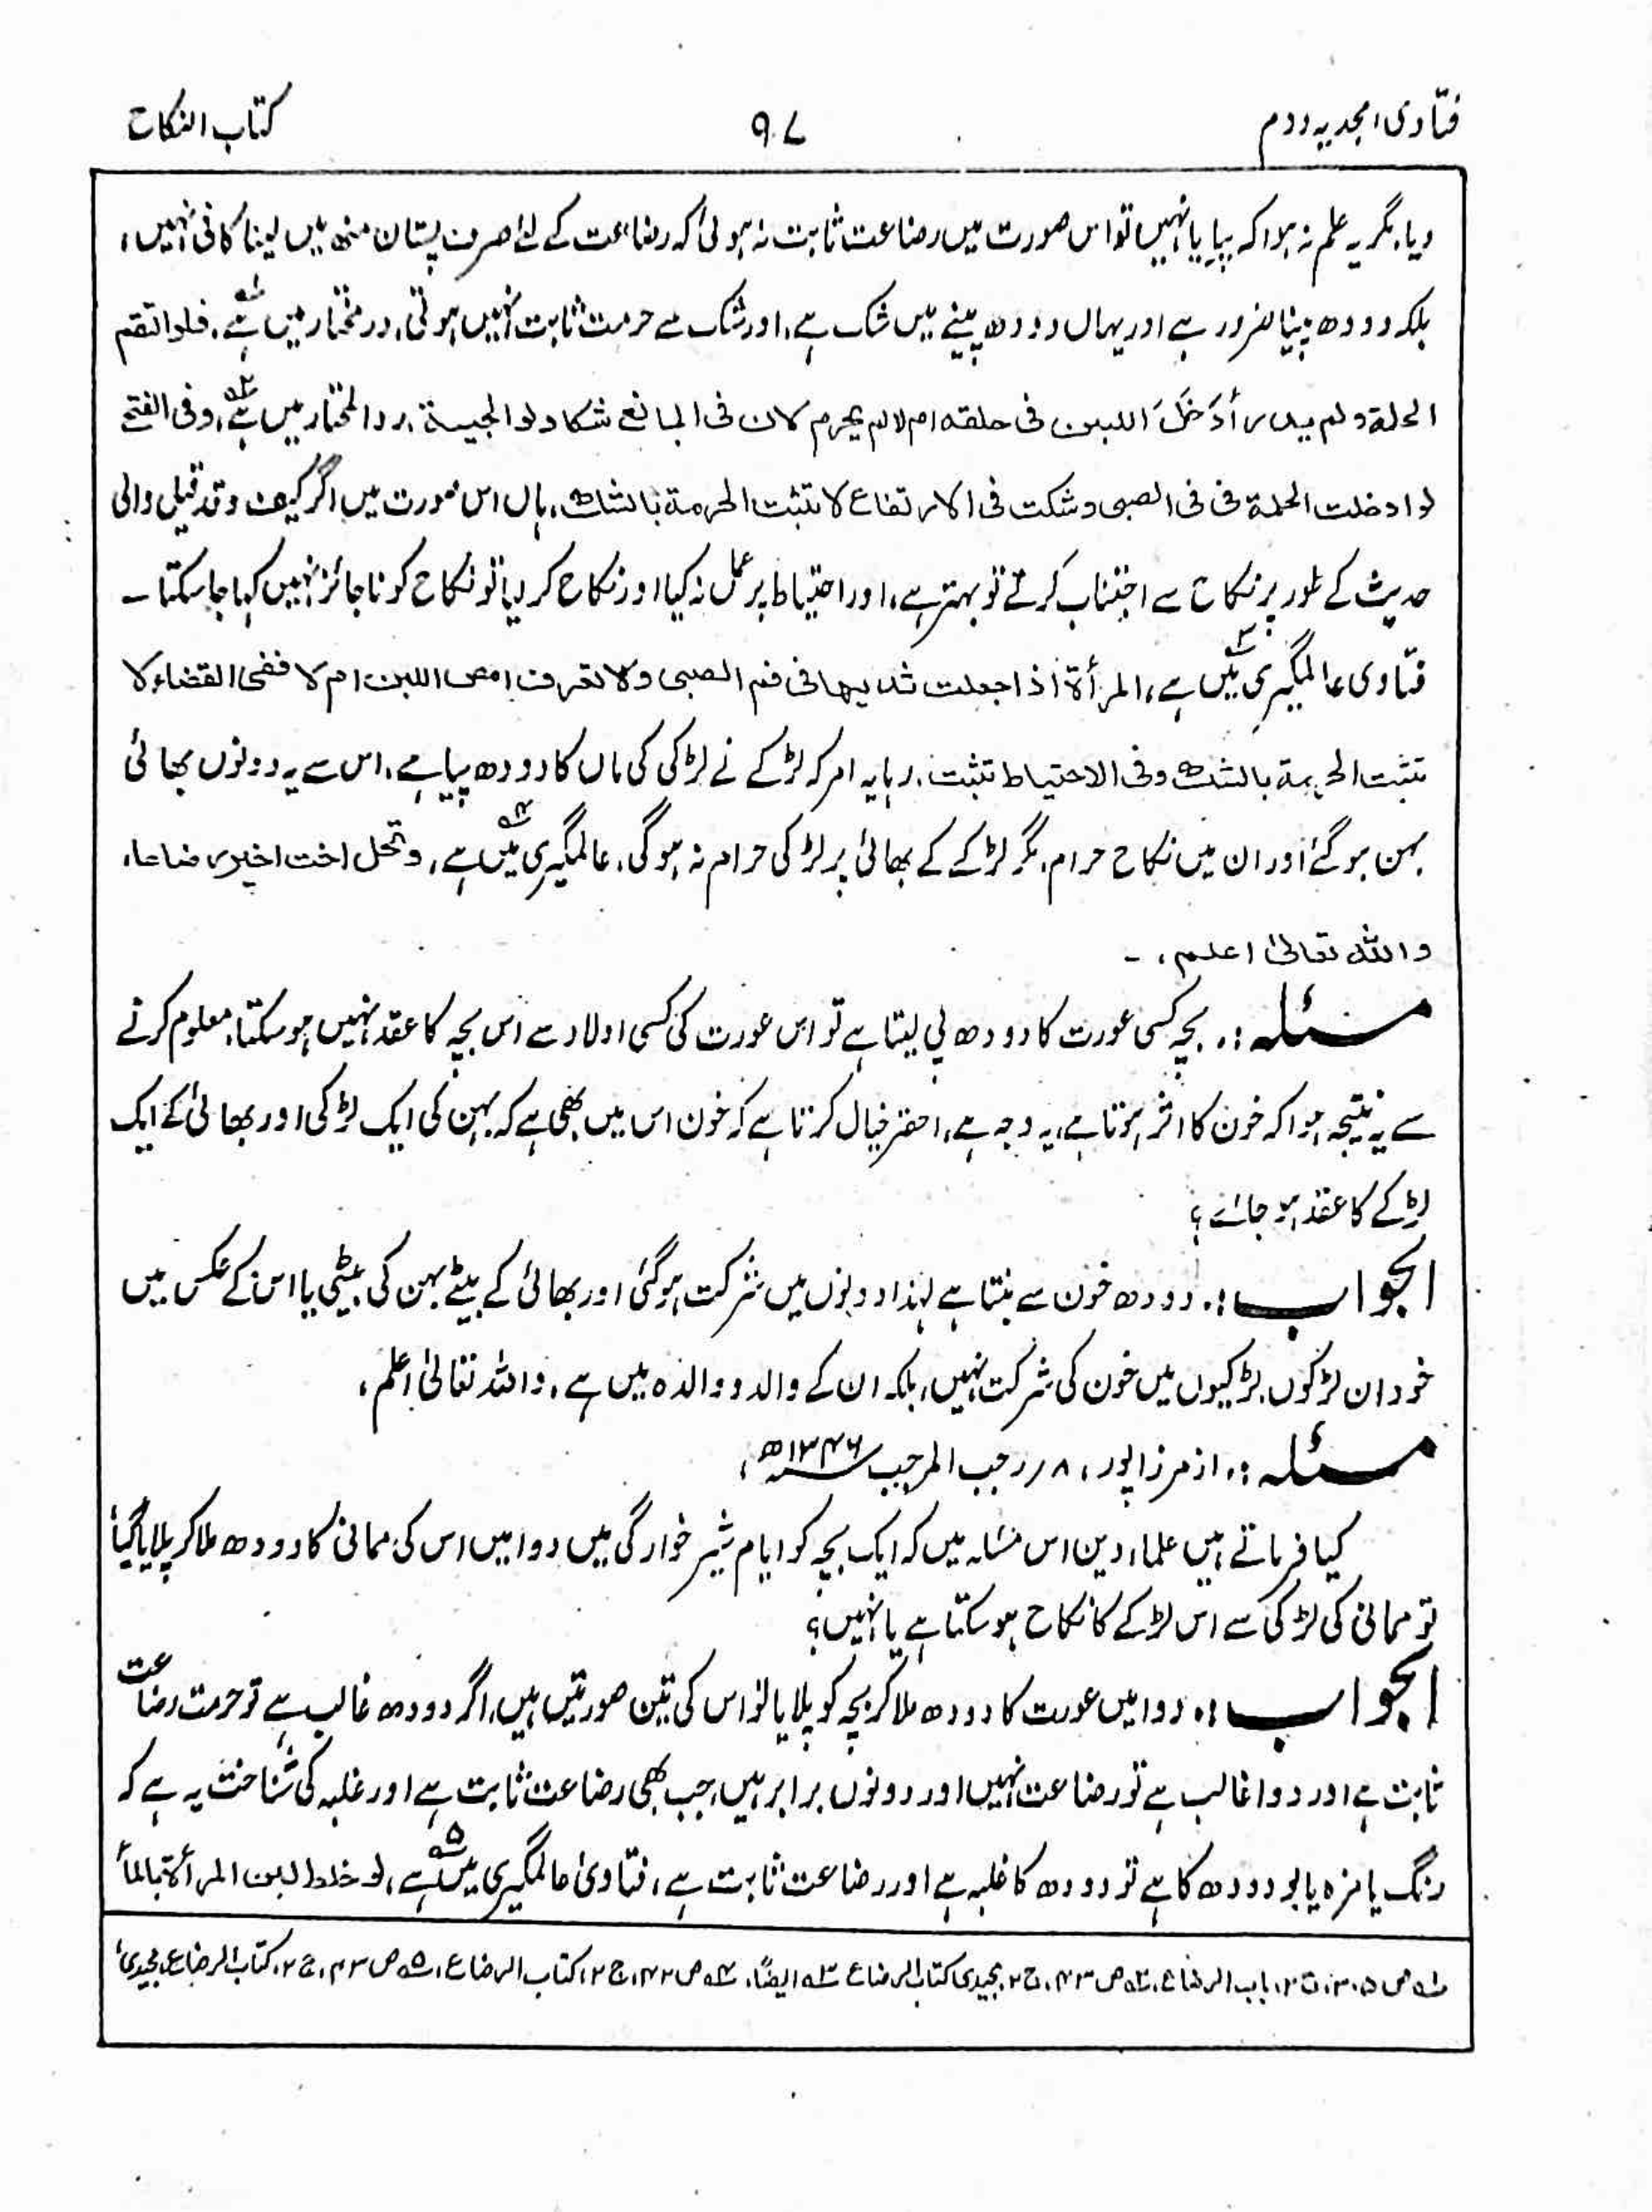 فتاویٰ امجدیہ دوم
۹۷
کتاب النکاح
دیا، مگر یہ علم نہ ہوا کہ پیا یا نہیں تو اس صورت میں رضاعت ثابت نہ ہوئی کہ رضاعت کے لئے صرف پستان منھ میں لینا کافی نہیں،
بلکہ دودھ پینا ضرور ہے اور یہاں دودھ پینے میں شک ہے، اور شک سے حرمت ثابت نہیں ہوتی، درمختار میں ہے۱؎، فلو التقم
الحلمة ولم یدر أدَخَلَ اللبن فی حلقه ام لا لم یحرم لان فی المانع شکا ولوالجیة، ردالمختار میں ہے۲؎، وفی الفتح
لو ادخلت الحلمة فی فی الصبی وشکت فی الارتفاع لا تثبت الحرمة بالشک، ہاں اس صورت میں اگر کیف وقد قیل والی
حدیث کے طور پر نکاح سے اجتناب کرتے تو بہتر ہے، اور احتیاط پر عمل نہ کیا اور نکاح کر دیا تو نکاح کو ناجائز نہیں کہا جا سکتا۔
فتاوی عالمگیری۳؎ میں ہے، المرأة اذا جعلت ثدیها فی فم الصبی ولا تعرف امص اللبن ام لا ففی القضاء لا
تثبت الحرمة بالشک وفی الاحتیاط تثبت، رہا یہ امر کہ لڑکے نے لڑکی کی ماں کا دودھ پیا ہے، اس سے یہ دونوں بھائی
بہن ہو گئے اور ان میں نکاح حرام، مگر لڑکے کے بھائی پر لڑکی حرام نہ ہوگی، عالمگیری میں۴؎ ہے، وتحل اخت اخیه رضاعا،
واللہ تعالیٰ اعلم، ۔
مسئلہ :، بچہ کسی عورت کا دودھ پی لیتا ہے تو اس عورت کی کسی اولاد سے اس بچہ کا عقد نہیں ہو سکتا، معلوم کرنے
سے یہ نتیجہ ہوا کہ خون کا اثر ہوتا ہے، یہ وجہ ہے، احقر خیال کرتا ہے کہ خون اس میں بھی ہے کہ بہن کی ایک لڑکی اور بھائی کے ایک
لڑکے کا عقد ہو جائے؟
الجواب :، دودھ خون سے بنتا ہے لہٰذا دونوں میں شرکت ہو گئی اور بھائی کے بیٹے بہن کی بیٹی یا اس کے عکس میں
خود ان لڑکوں لڑکیوں میں خون کی شرکت نہیں، بلکہ ان کے والد و والدہ میں ہے، واللہ تعالیٰ اعلم،
مسئلہ :، از مرزا پور، ۸؍ رجب المرجب ۱۳۴۶ھ،
کیا فرماتے ہیں علماء دین اس مسئلہ میں کہ ایک بچہ کو ایام شیر خوارگی میں دوا میں اس کی ممانی کا دودھ ملا کر پلایا گیا
تو ممانی کی لڑکی سے اس لڑکے کا نکاح ہو سکتا ہے یا نہیں؟
الجواب :، دوا میں عورت کا دودھ ملا کر بچہ کو پلایا تو اس کی تین صورتیں ہیں، اگر دودھ غالب ہے تو حرمت رضاعت
ثابت ہے اور دوا غالب ہے تو رضاعت نہیں اور دونوں برابر ہیں جب بھی رضاعت ثابت ہے اور غلبہ کی شناخت یہ ہے کہ
رنگ یا مزہ یا بو دودھ کا ہے تو دودھ کا غلبہ ہے اور رضاعت ثابت ہے، فتاویٰ عالمگیری میں۵؎ ہے، لو خلط لبن المرأة بالماء
۱؎ ص ۳۰۵، ج ۲، باب الرضاع، ۲؎ ص ۴۳، ج ۲، مجیدی کتاب الرضاع ۳؎ ایضًا، ۴؎ ص ۴۲، ج ۲، کتاب الرضاع، ۵؎ ص ۴۳، ج ۲، کتاب الرضاع، مجیدی